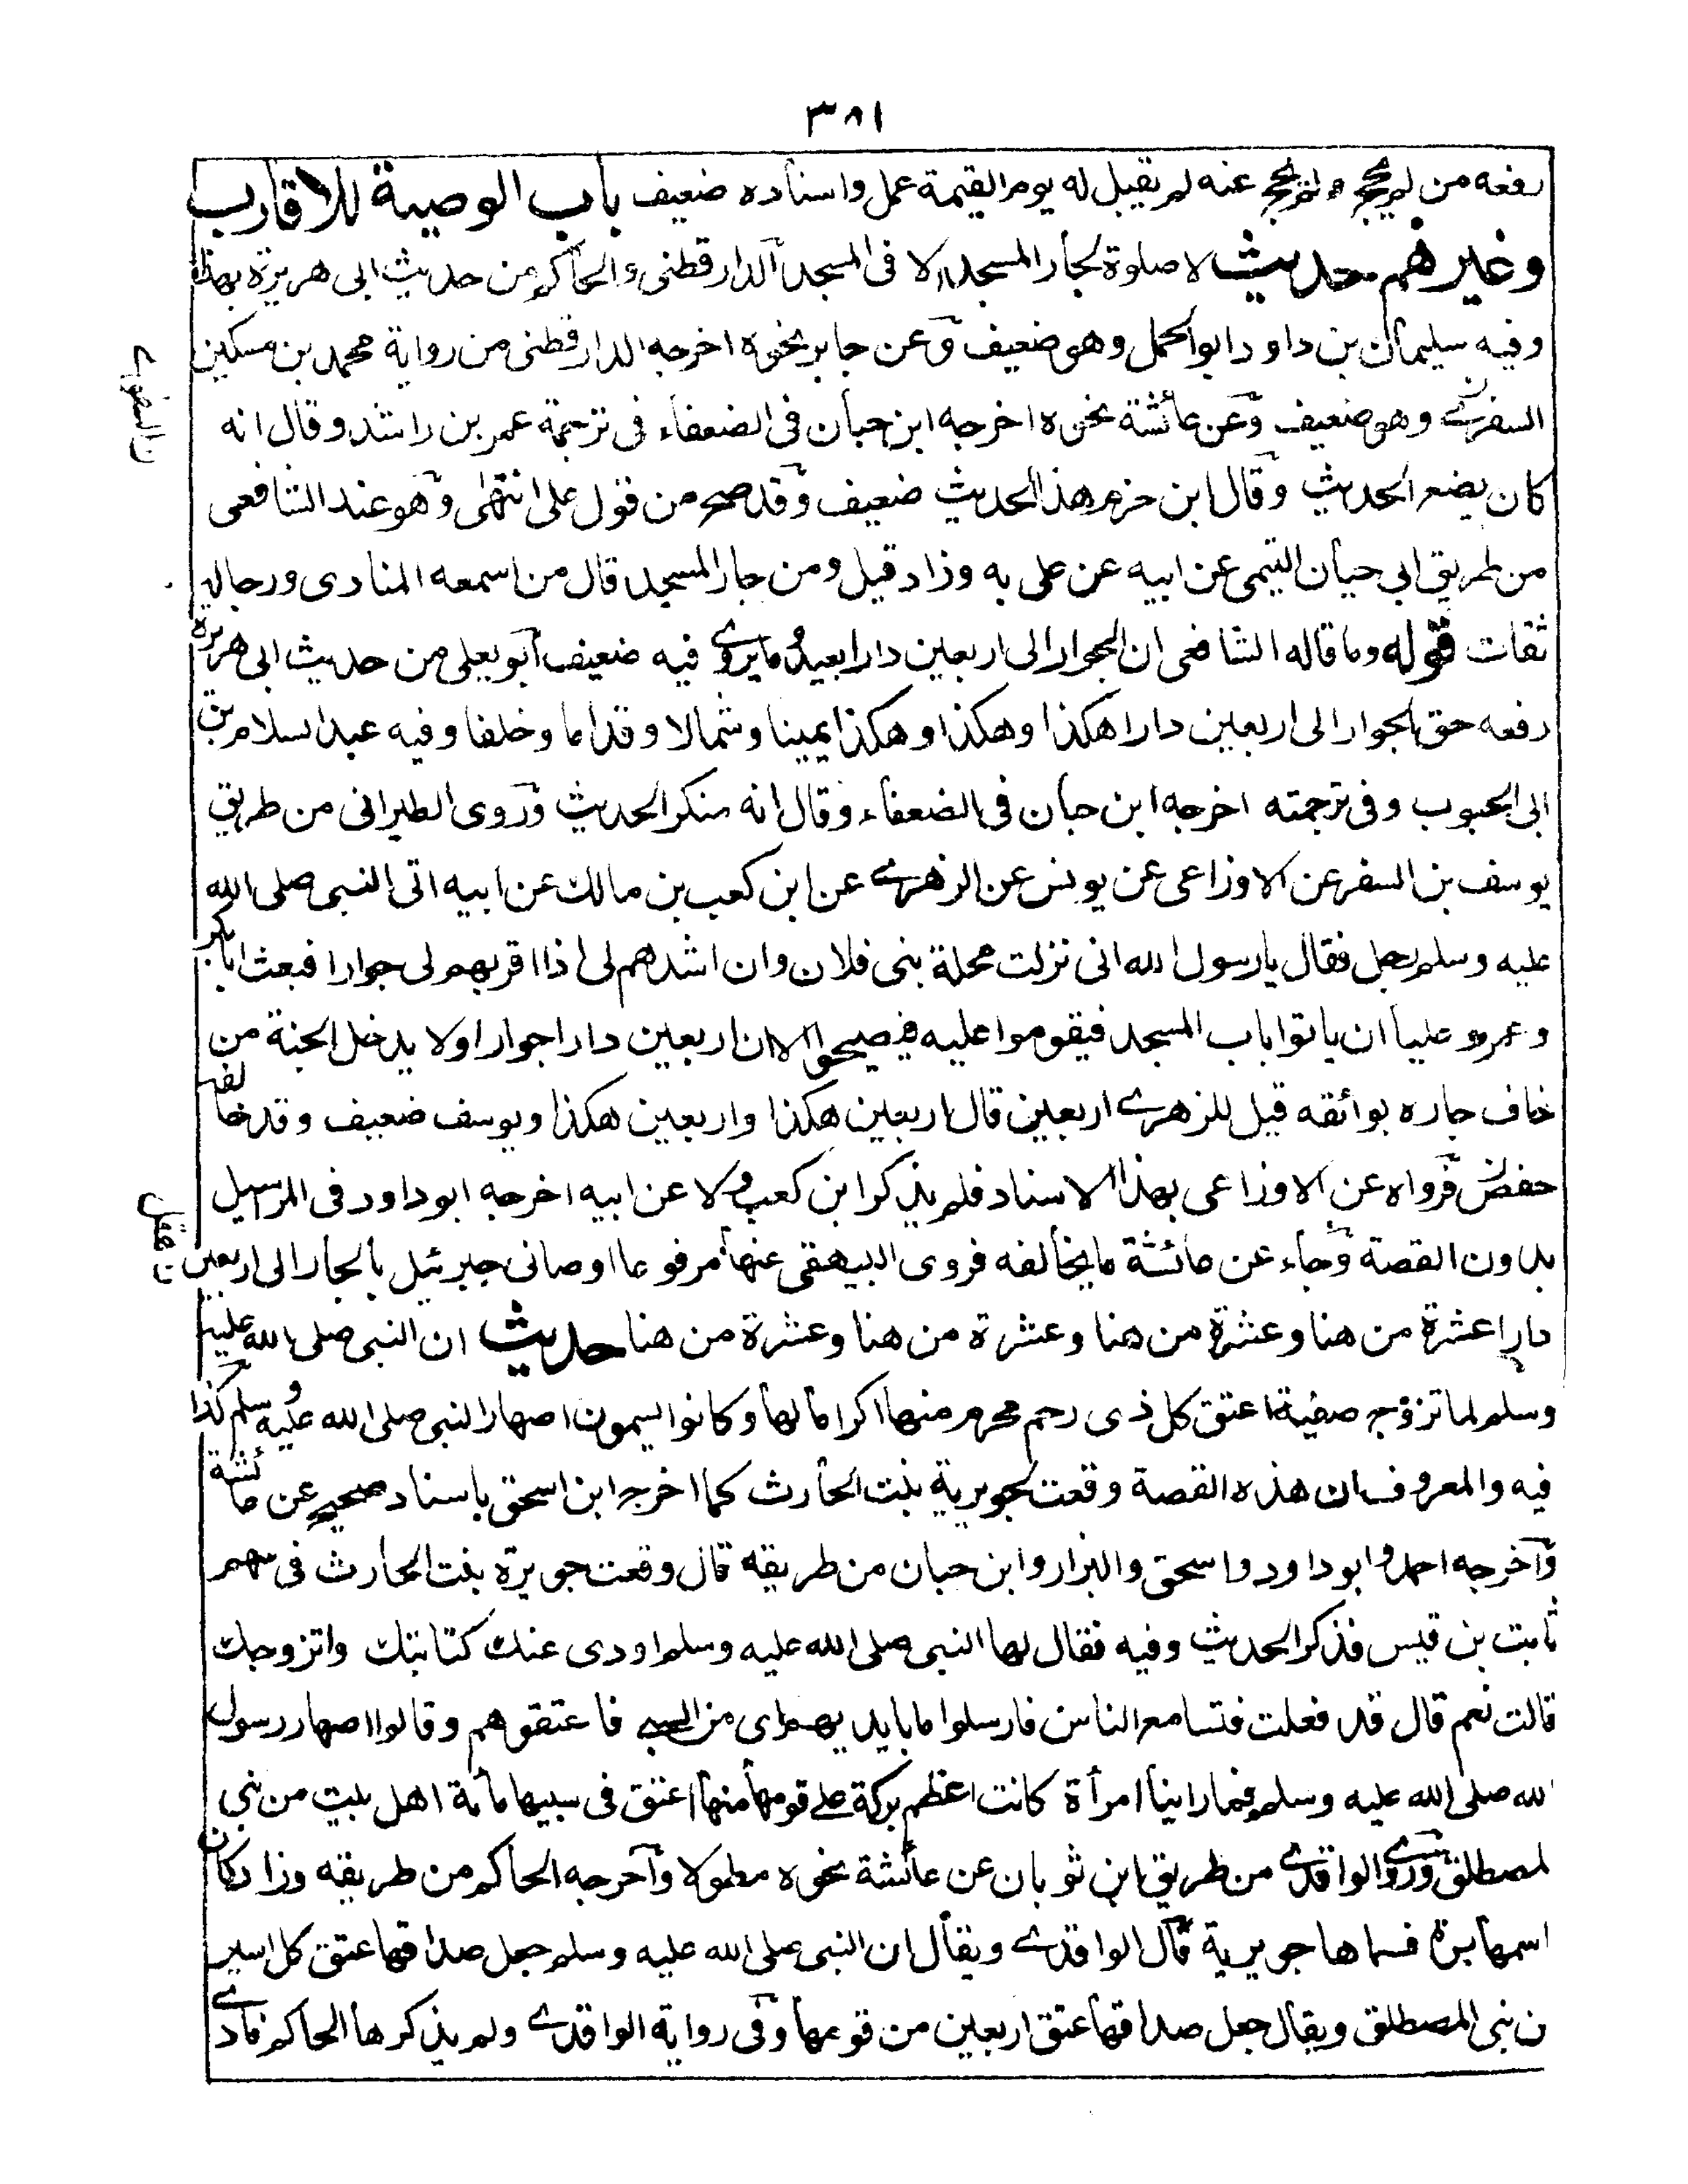 ٣٨١
رفعه من لم يحج ولم يحج عنه لم يقبل له يوم القيمة عمل واسناده ضعيف باب الوصية للاقارب
وغيرهم حديث لا صلوة لجار المسجد الا فى المسجد الدارقطنى والحاكم من حديث ابى هريرة بهذا
وفيه سليمان بن داود ابو الجمل وهو ضعيف وعن جابر نحوه اخرجه الدارقطنى من رواية محمد بن مسكين
السفرى وهو ضعيف وعن عائشة نحوه اخرجه ابن حبان فى الضعفاء فى ترجمة عمر بن راشد وقال انه
كان يضع الحديث وقال ابن حزم هذا الحديث ضعيف وقد صح من قول على انتهى وهو عند الشافعى
من طريق ابى حيان التيمى عن ابيه عن على به وزاد قيل ومن جار المسجد قال من اسمعه المنادى ورجاله
ثقات قوله وما قاله الشافعى ان الجوار الى اربعين دارا بعيد وما يروى فيه ضعيف ابو يعلى من حديث ابى هريرة
رفعه حق الجوار الى اربعين دارا هكذا وهكذا وهكذا يمينا وشمالا وقداما وخلفا وفيه عبد السلام بن
ابى الجبوب وفى ترجمته اخرجه ابن حبان فى الضعفاء وقال انه منكر الحديث وروى الطبرانى من طريق
يوسف بن السفر عن الاوزاعى عن يونس عن الزهرى عن ابن كعب بن مالك عن ابيه اتى النبى صلى الله
عليه وسلم رجل فقال يا رسول الله انى نزلت محلة بنى فلان وان اشدهم لى اذا اقربهم لى جوارا فبعث ابا بكر
وعمر وعليا ان ياتوا باب المسجد فيقوموا عليه فيصيحوا الا ان اربعين دارا جوار اولا يدخل الجنة من
خاف جاره بوائقه قيل للزهرى اربعين قال اربعين هكذا واربعين هكذا ويوسف ضعيف وقد خالفه
حفص فرواه عن الاوزاعى بهذا الاسناد فلم يذكر ابن كعب ولا عن ابيه اخرجه ابو داود فى المراسيل
بدون القصة وجاء عن عائشة ما يخالفه فروى البيهقى عنها مرفوعا اوصانى جبرئيل بالجار الى اربعين
دارا عشرة من هنا وعشرة من هنا وعشرة من هنا وعشرة من هنا حديث ان النبى صلى الله عليه
وسلم لما تزوج صفية اعتق كل ذى رحم محرم منها اكراما لها وكانوا يسمون اصهار النبى صلى الله عليه وسلم كذا
فيه والمعروف ان هذه القصة وقعت لجويرية بنت الحارث كما اخرجه ابن اسحق باسناد صحيح عن عائشة
واخرجه احمد وابو داود واسحق والبزار وابن حبان من طريقه قال وقعت جويرة بنت الحارث فى سهم
ثابت بن قيس فذكر الحديث وفيه فقال لها النبى صلى الله عليه وسلم اودى عنك كتابتك واتزوجك
قالت نعم قال قد فعلت فتسامع الناس فارسلوا ما بايديهم اى من السبى فاعتقوهم وقالوا اصهار رسول
لله صلى الله عليه وسلم فما راينا امرأة كانت اعظم بركة على قومها منها اعتق فى سببها مائة اهل بيت من بنى
لمصطلق وروى الواقدى من طريق ابن ثوبان عن عائشة نحوه مطولا واخرجه الحاكم من طريقه وزاد كان
اسمها برة فسماها جويرية قال الواقدى ويقال ان النبى صلى الله عليه وسلم جعل صداقها عتق كل اسير
ن بنى المصطلق ويقال جعل صداقها عتق اربعين من قومها وفى رواية الواقدى ولم يذكرها الحاكم فادى